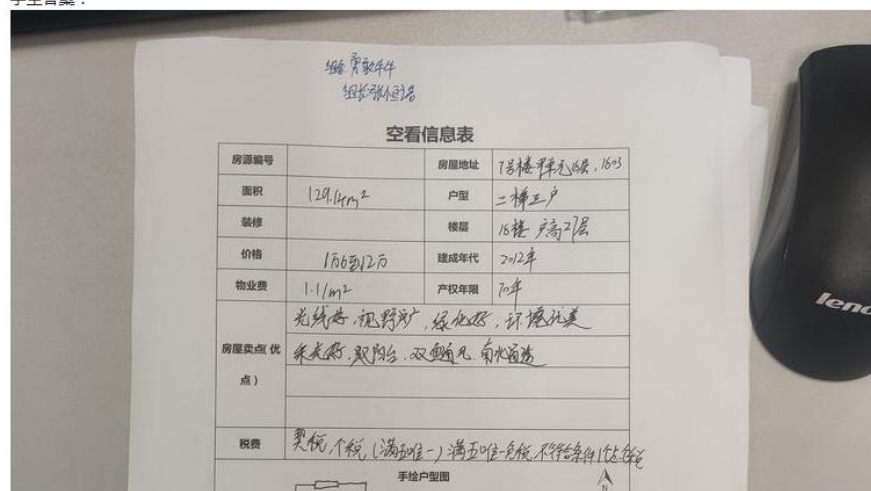 学生答案：
组名
组长
空看信息表
房源编号
房屋地址 7号楼 单元16层，1603
面积 129.14m²
户型 二梯三户
装修
楼层 16楼 高21层
价格 1万6至2万
建成年代 2012年
物业费 1.1/m²
产权年限 70年
光线好，视野广，绿化好，环境优美
房屋卖点（优点） 采光好，双阳台，双通风，南北通透
税费 契税，个税，（满五唯一）满五唯一免税，不符合条件1个点
手绘户型图
N
lenovo